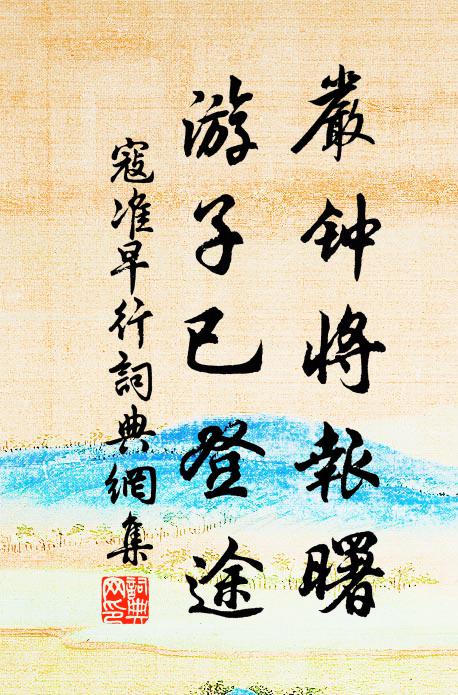 嚴钟將報曙
游子已登途
寇准早行詞典網集
詞典